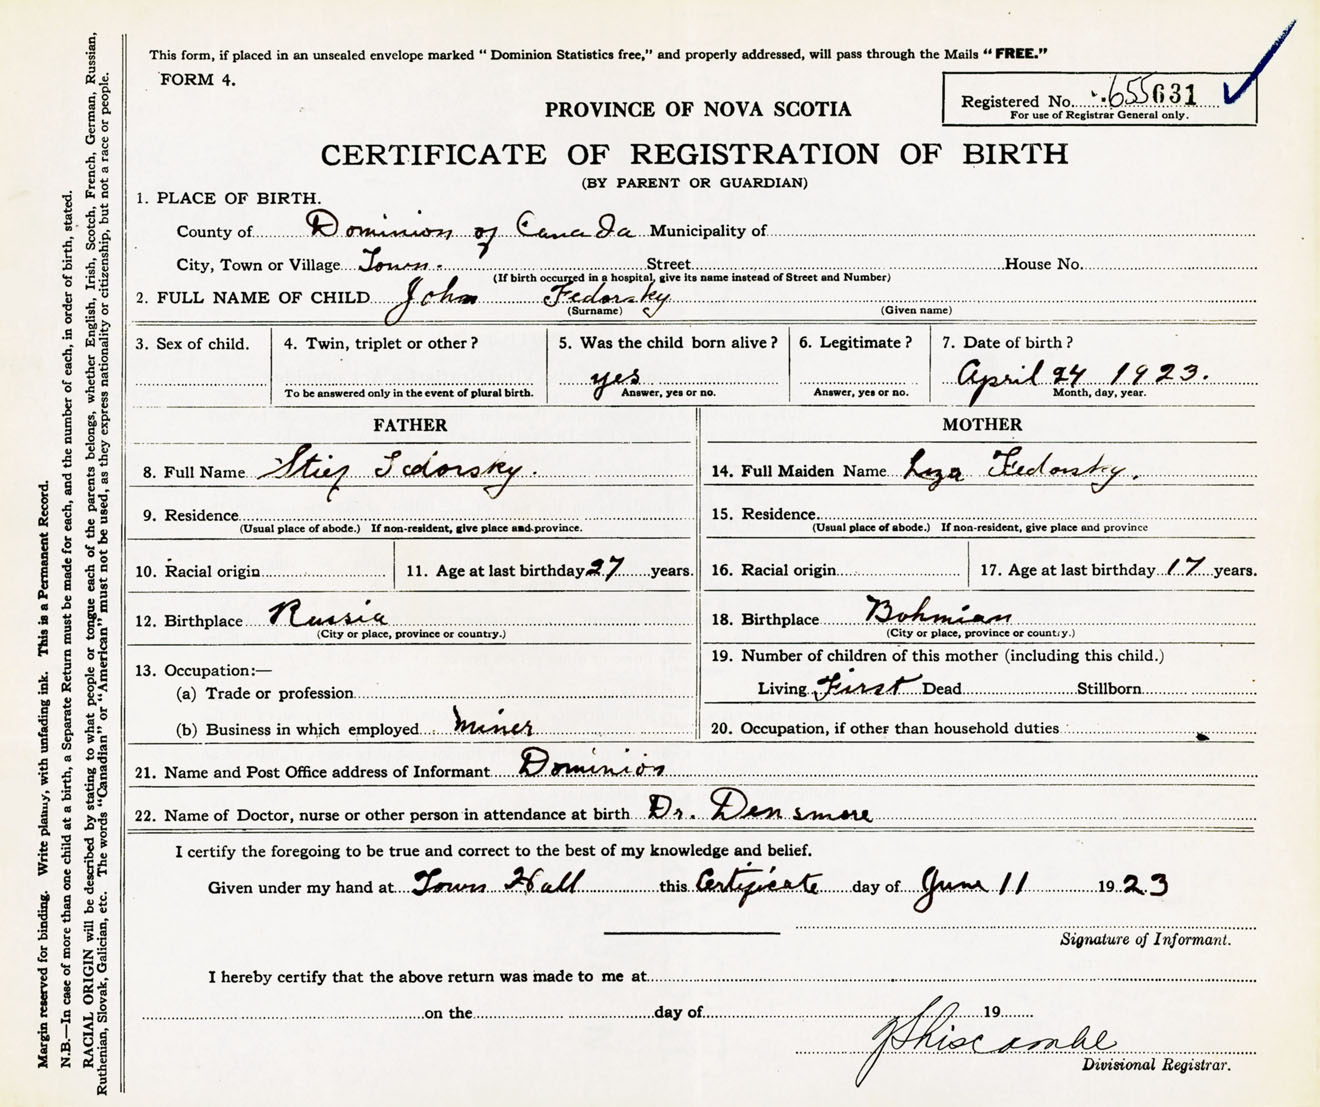 This form, if placed in an unsealed envelope marked "Dominion Statistics free," and properly addressed, will pass through the Mails "FREE."
FORM 4.
Registered No. 655631
For use of Registrar General only.
PROVINCE OF NOVA SCOTIA
CERTIFICATE OF REGISTRATION OF BIRTH
(BY PARENT OR GUARDIAN)
1. PLACE OF BIRTH.
County of Dominion of Canada Municipality of
City, Town or Village Town. Street House No.
(If birth occurred in a hospital, give its name instead of Street and Number)
2. FULL NAME OF CHILD John Fedorsky
(Surname) (Given name)
3. Sex of child. 4. Twin, triplet or other? 5. Was the child born alive? 6. Legitimate? 7. Date of birth?
yes April 24 1923.
To be answered only in the event of plural birth. Answer, yes or no. Answer, yes or no. Month, day, year.
FATHER MOTHER
8. Full Name Fedorsky. 14. Full Maiden Name Liza Fedorsky.
9. Residence 15. Residence
(Usual place of abode.) If non-resident, give place and province. (Usual place of abode.) If non-resident, give place and province
10. Racial origin 11. Age at last birthday 27 years. 16. Racial origin 17. Age at last birthday 17 years.
12. Birthplace Russia 18. Birthplace Bohmian
(City or place, province or country.) (City or place, province or country.)
13. Occupation:— 19. Number of children of this mother (including this child.)
(a) Trade or profession Living First Dead Stillborn
(b) Business in which employed Miner 20. Occupation, if other than household duties
21. Name and Post Office address of Informant Dominion
22. Name of Doctor, nurse or other person in attendance at birth Dr. Densmore
I certify the foregoing to be true and correct to the best of my knowledge and belief.
Given under my hand at Town Hall this Certificate day of June 11 1923
Signature of Informant.
I hereby certify that the above return was made to me at
on the day of 19
Divisional Registrar.
Margin reserved for binding. Write plainly, with unfading ink. This is a Permanent Record.
N.B.—In case of more than one child at a birth, a Separate Return must be made for each, and the number of each, in order of birth, stated.
RACIAL ORIGIN will be described by stating to what people or tongue each of the parents belongs, whether English, Irish, Scotch, French, German, Russian,
Ruthenian, Slovak, Galician, etc. The words "Canadian" or "American" must not be used, as they express nationality or citizenship, but not a race or people.